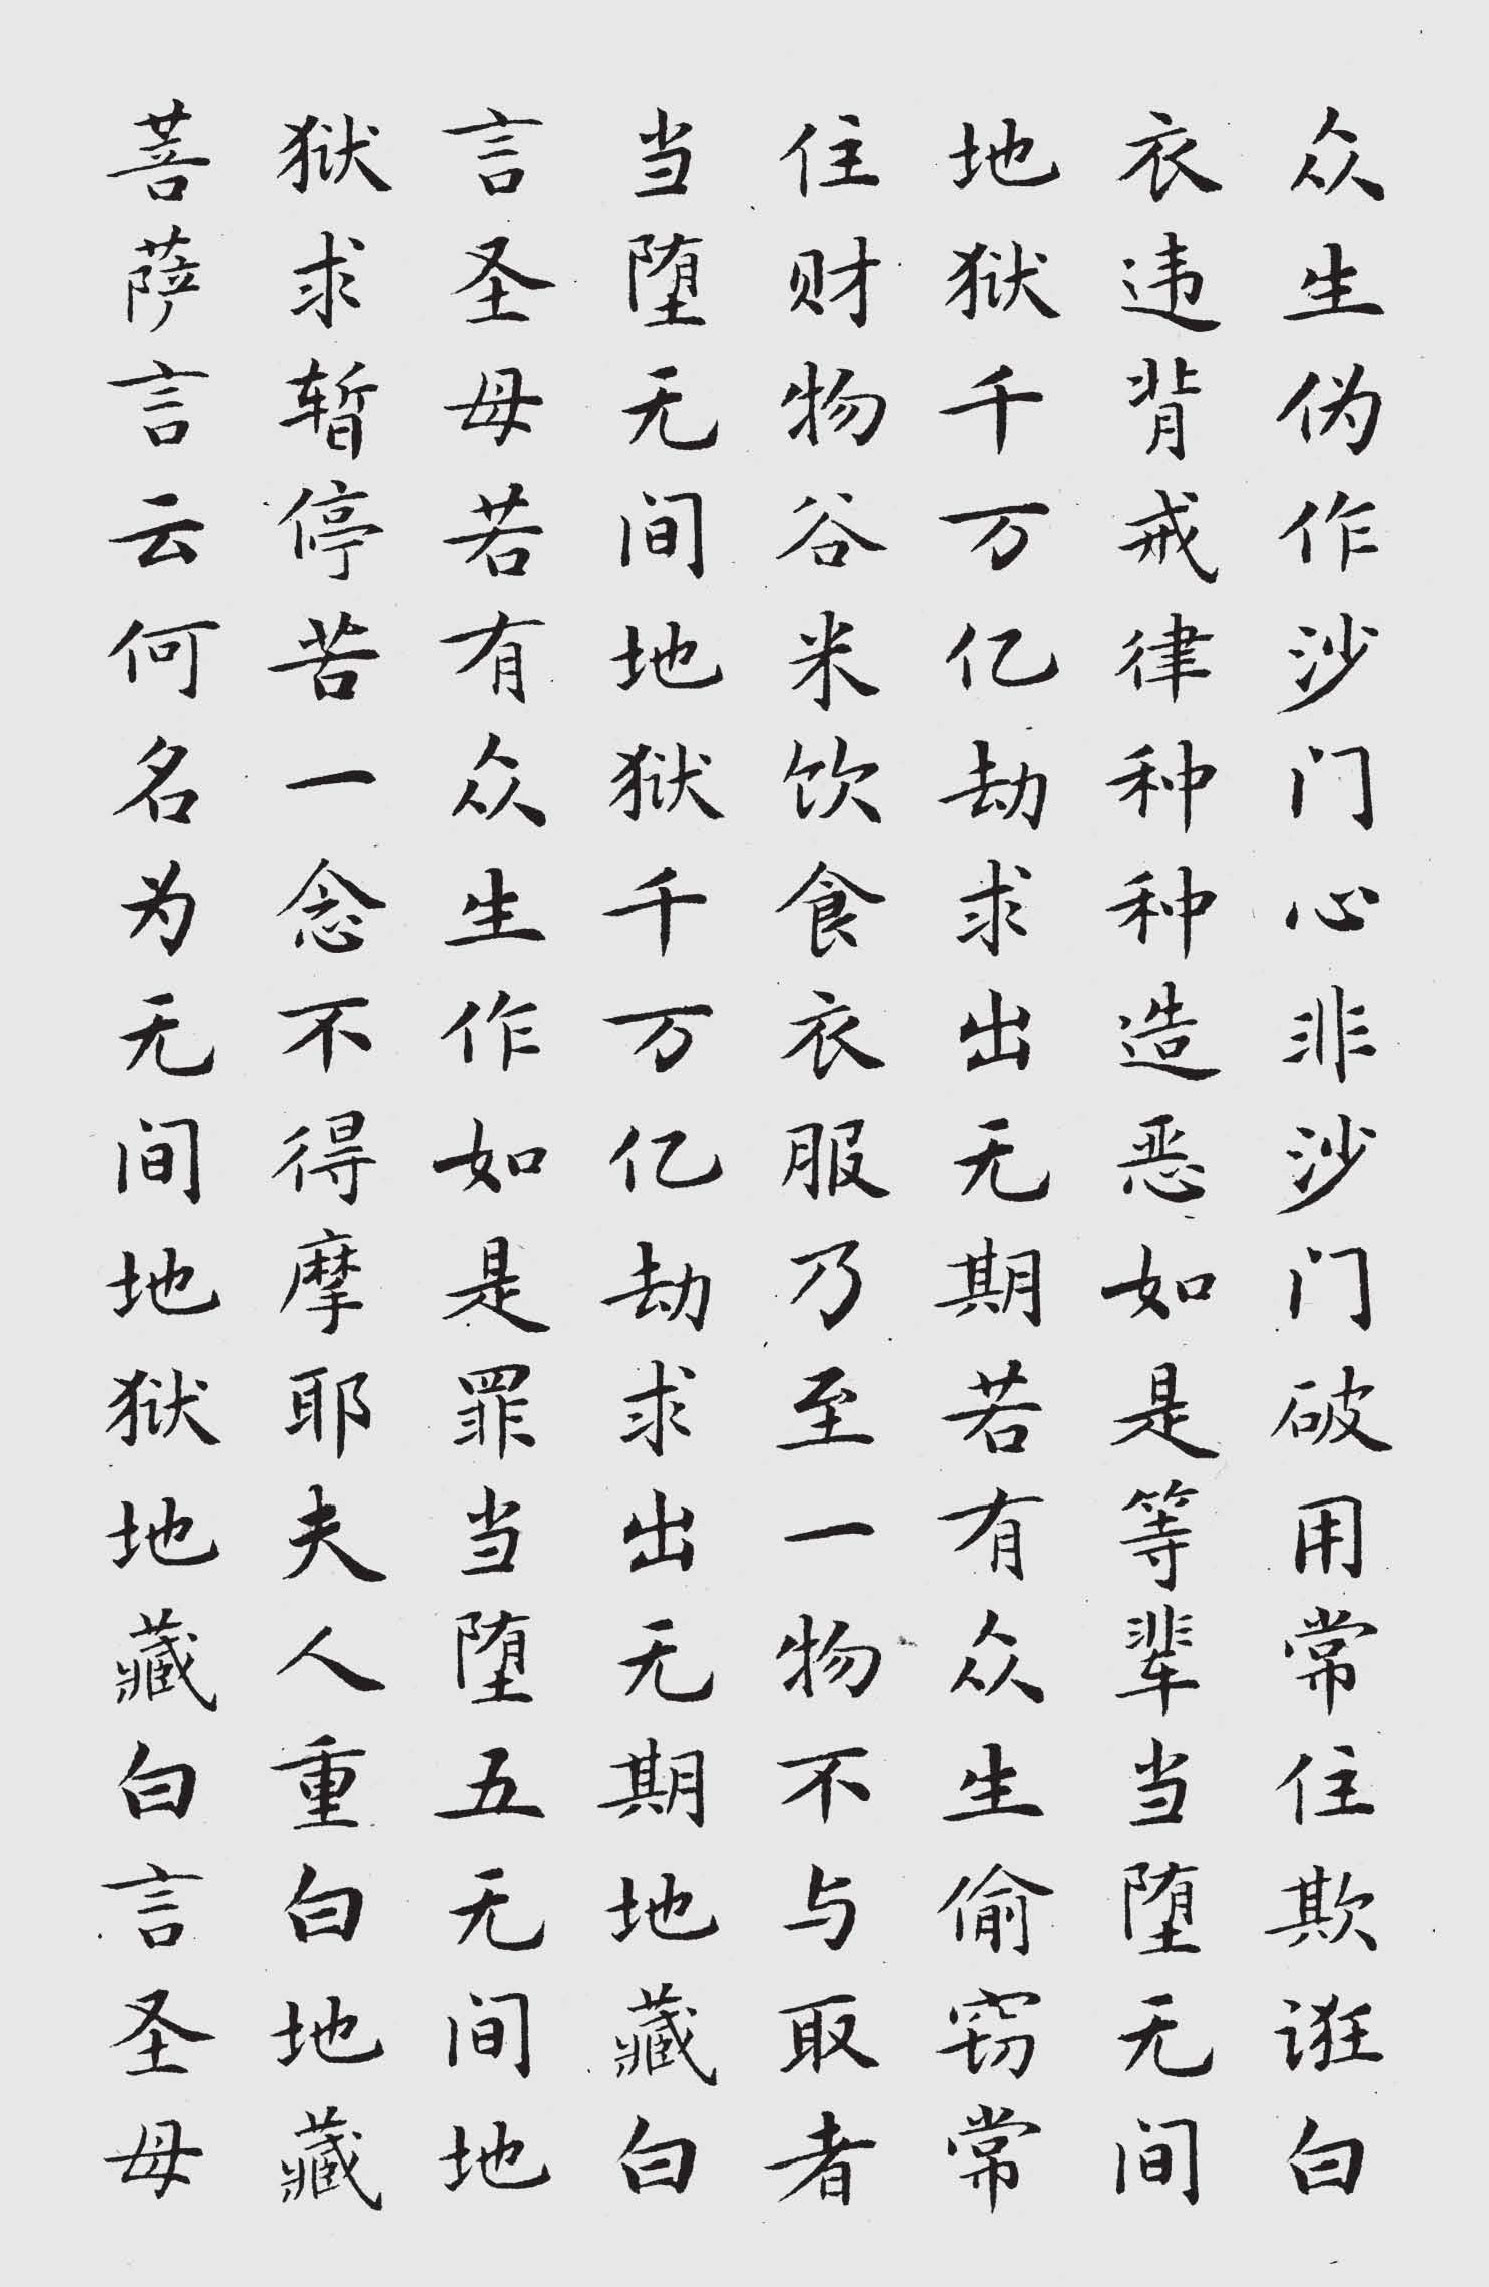 众生伪作沙门心非沙门破用常住欺诳白
衣违背戒律种种造恶如是等辈当堕无间
地狱千万亿劫求出无期若有众生偷窃常
住财物谷米饮食衣服乃至一物不与取者
当堕无间地狱千万亿劫求出无期地藏白
言圣母若有众生作如是罪当堕五无间地
狱求暂停苦一念不得摩耶夫人重白地藏
菩萨言云何名为无间地狱地藏白言圣母